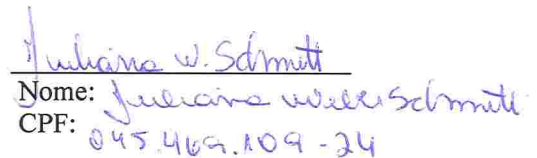 Juliana W. Schmitt
Nome: Juliana Wille Schmitt
CPF: 045.469.109-24